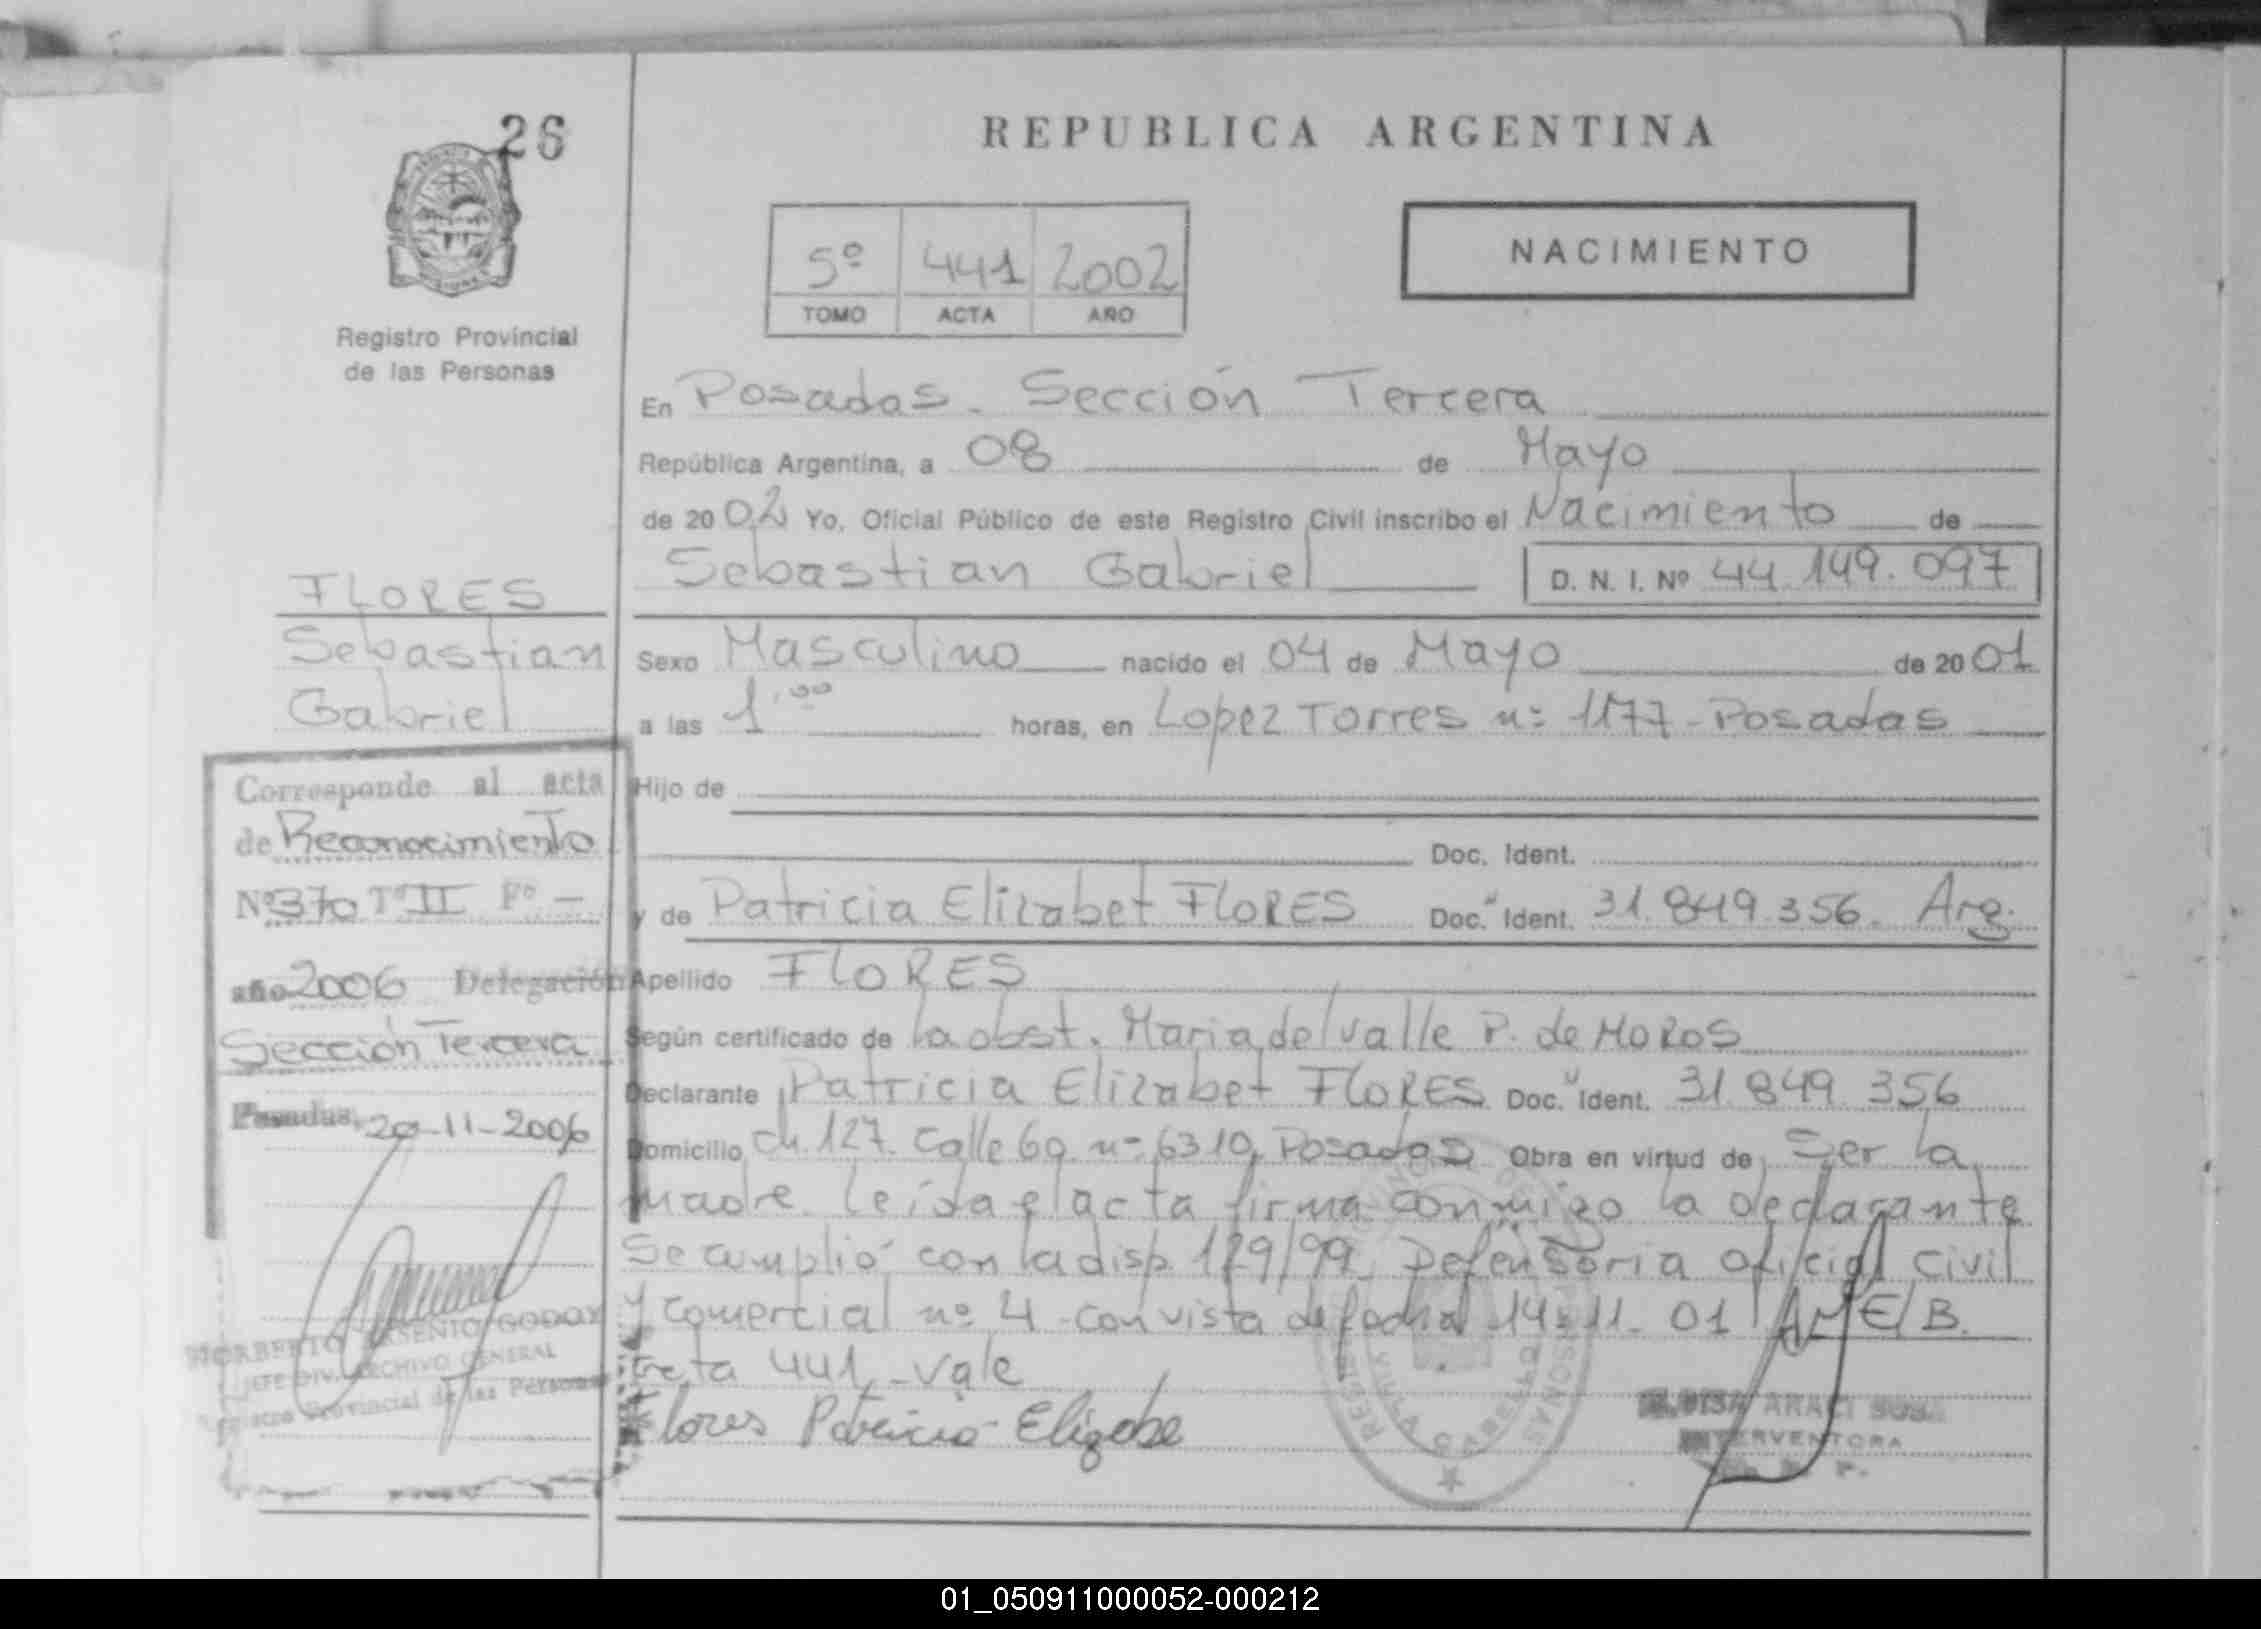 26
REPUBLICA ARGENTINA
5º 441 2002
TOMO ACTA AÑO
NACIMIENTO
Registro Provincial
de las Personas
En Posadas. Sección Tercera
República Argentina, a 08 de Mayo
de 2002 Yo, Oficial Público de este Registro Civil inscribo el Nacimiento de
Sebastian Gabriel D. N. I. Nº 44.149.097
FLORES
Sebastian
Gabriel
Sexo Masculino nacido el 04 de Mayo de 2001
a las 1,00 horas, en Lopez Torres nº 1177 - Posadas
Hijo de
Doc. Ident.
y de Patricia Elizabet FLORES Doc. Ident. 31.849.356. Arg.
Apellido FLORES
Según certificado de la obst. Maria del valle P. de MOROS
Declarante Patricia Elizabet FLORES Doc. Ident. 31.849.356
Domicilio Ch. 127. Calle 69 nº 6310, Posadas Obra en virtud de Ser la
madre. leída el acta firma conmigo la declarante
Se cumplió con la disp. 129/99. Defensoria oficial civil
y comercial nº 4 - con vista de fecha 14-11-01
441 - vale
Flores Patricia Elizabe
Corresponde al acta
de Reconocimiento
Nº 370 Tº II Fº -
año 2006 Delegación
Sección Tercera
Posadas, 20-11-2006
NORBERTO ARSENIO GODOY
JEFE DIV. ARCHIVO GENERAL
Registro Provincial de las Personas
ARACI SOSA
INTERVENTORA
01_050911000052-000212